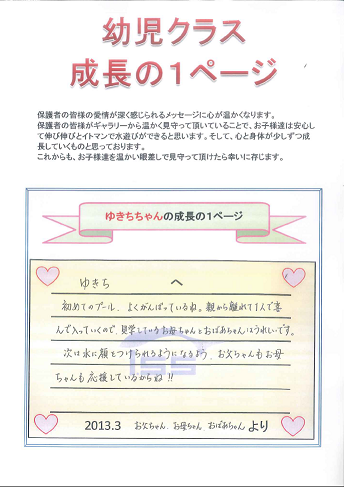 幼児クラス
成長の1ページ
保護者の皆様の愛情が深く感じられるメッセージに心が温かくなります。
保護者の皆様がギャラリーから温かく見守って頂いていることで、お子様達は安心し
て伸び伸びとイトマンで水遊びができると思います。そして、心と身体が少しずつ成
長していくものと思っております。
これからも、お子様達を温かい眼差しで見守って頂けたら幸いに存じます。
ゆきちちゃんの成長の1ページ
ゆきち へ
初めてのプール、よくがんばっているね。親から離れて1人で喜
んで入っていくので、見学しているお母ちゃんとおばあちゃんはうれしいです。
次は水に顔をつけられるようになるよう、お父ちゃんもお母
ちゃんも応援しているからね!!
ISS
2013.3 お父ちゃん、お母ちゃん、おばあちゃん より